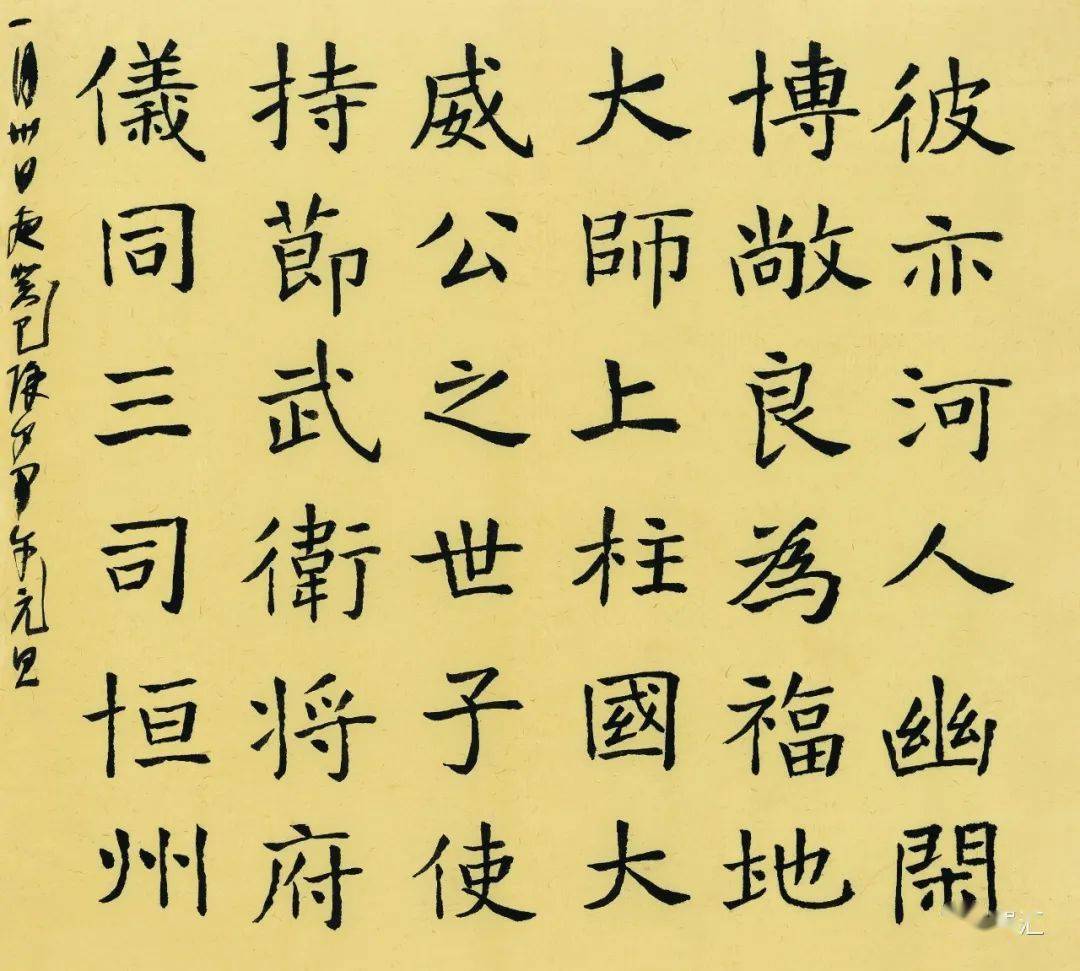 彼亦河人幽閑
博敞良為福地
大師上柱國大
威公之世子使
持節武衛將府
儀同三司恒州
一月卅日夜癸巳除夕甲午元旦
汇